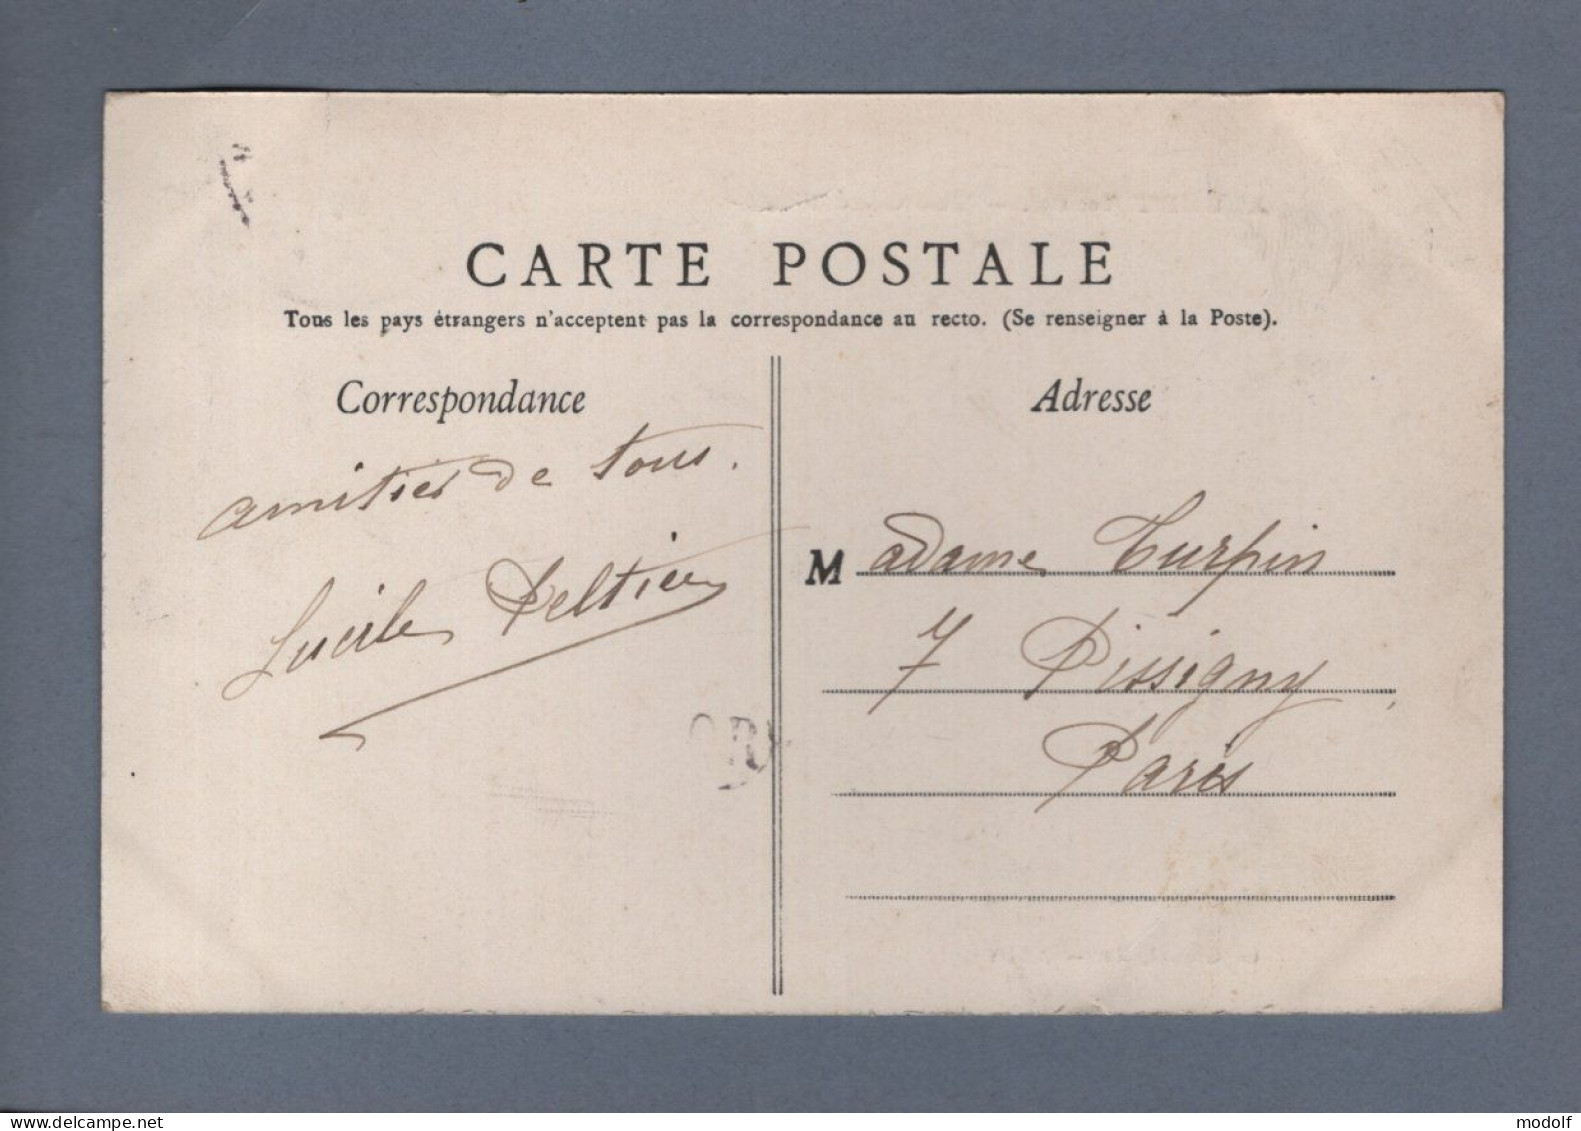 CARTE POSTALE
Tous les pays étrangers n'acceptent pas la correspondance au recto. (Se renseigner à la Poste).
Correspondance
amitiés de tous.
Lucile Peltier
OR
Adresse
Madame Turpin
7 Pissigny
Paris
www.delcampe.net
modolf